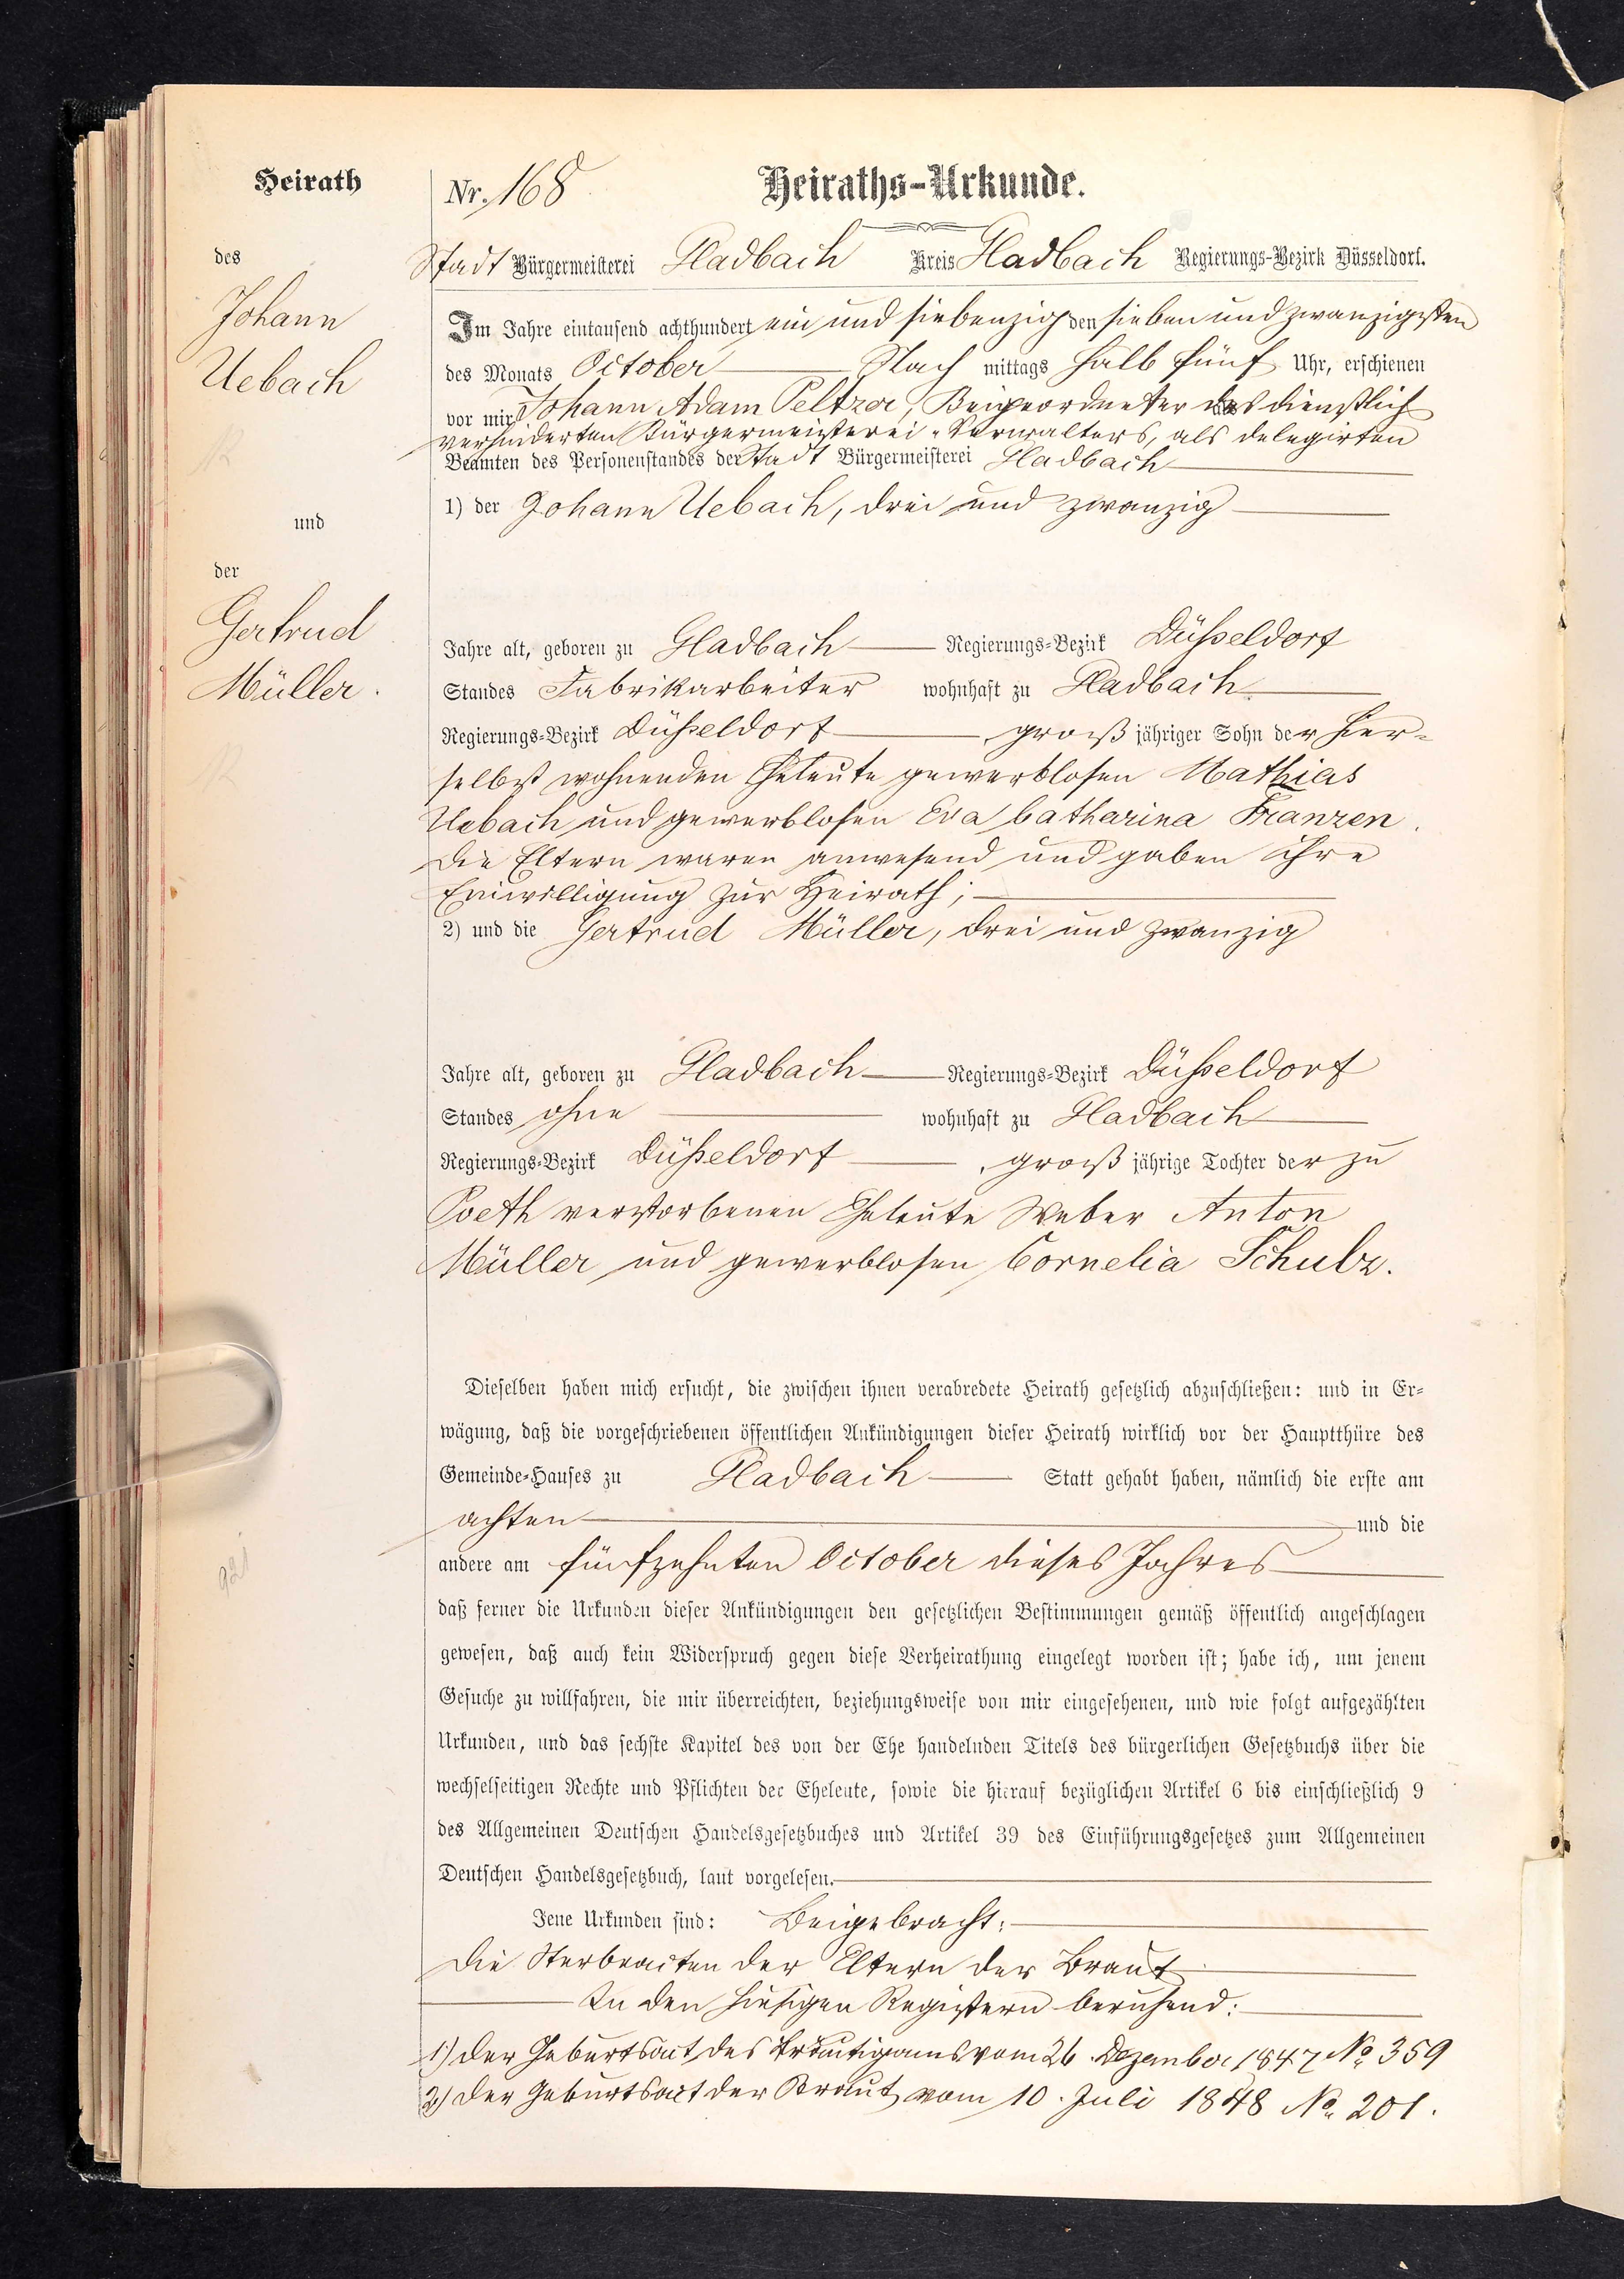 Heirath
des
Johann
Uebach
und
der
Gertrud
Müller.
Nr. 168
Heiraths-Urkunde.
Stadt Bürgermeisterei Gladbach Kreis Gladbach Regierungs-Bezirk Düsseldorf.
Im Jahre eintausend achthundert ein und siebenzig den sieben und zwanzigsten
des Monats October Nach mittags halb fünf Uhr, erschienen
vor mir Johann Adam Peltzer, Beigeordneter des dienstlich
verhinderten Bürgermeisterei-Verwalters, als delegirten
Beamten des Personenstandes der Stadt Bürgermeisterei Gladbach
1) der Johann Uebach, drei und zwanzig
Jahre alt, geboren zu Gladbach Regierungs-Bezirk Düsseldorf
Standes Fabrikarbeiter wohnhaft zu Gladbach
Regierungs-Bezirk Düsseldorf groß jähriger Sohn der hier-
selbst wohnenden Eheleute gewerblosen Mathias
Uebach und gewerblosen Eva Catharina Franzen.
Die Eltern waren anwesend und gaben ihre
Einwilligung zur Heirath;
2) und die Gertrud Müller, drei und zwanzig
Jahre alt, geboren zu Gladbach Regierungs-Bezirk Düsseldorf
Standes ohne wohnhaft zu Gladbach
Regierungs-Bezirk Düsseldorf groß jährige Tochter der zu
Poeth verstorbenen Eheleute Weber Anton
Müller und gewerblosen Cornelia Schulz.
Dieselben haben mich ersucht, die zwischen ihnen verabredete Heirath gesetzlich abzuschließen: und in Er-
wägung, daß die vorgeschriebenen öffentlichen Ankündigungen dieser Heirath wirklich vor der Hauptthüre des
Gemeinde-Hauses zu Gladbach Statt gehabt haben, nämlich die erste am
achten und die
andere am fünfzehnten October dieses Jahres
daß ferner die Urkunden dieser Ankündigungen den gesetzlichen Bestimmungen gemäß öffentlich angeschlagen
gewesen, daß auch kein Widerspruch gegen diese Verheirathung eingelegt worden ist; habe ich, um jenem
Gesuche zu willfahren, die mir überreichten, beziehungsweise von mir eingesehenen, und wie folgt aufgezählten
Urkunden, und das sechste Kapitel des von der Ehe handelnden Titels des bürgerlichen Gesetzbuchs über die
wechselseitigen Rechte und Pflichten der Eheleute, sowie die hierauf bezüglichen Artikel 6 bis einschließlich 9
des Allgemeinen Deutschen Handelsgesetzbuches und Artikel 39 des Einführungsgesetzes zum Allgemeinen
Deutschen Handelsgesetzbuch, laut vorgelesen.
Jene Urkunden sind: Beigebracht:
Die Sterbeacten der Eltern der Braut
In den hiesigen Registern beruhend:
1) Der Geburtsact des Bräutigams vom 26. Dezember 1847 No 359
2) Der Geburtsact der Braut vom 10. Juli 1848 No. 201.